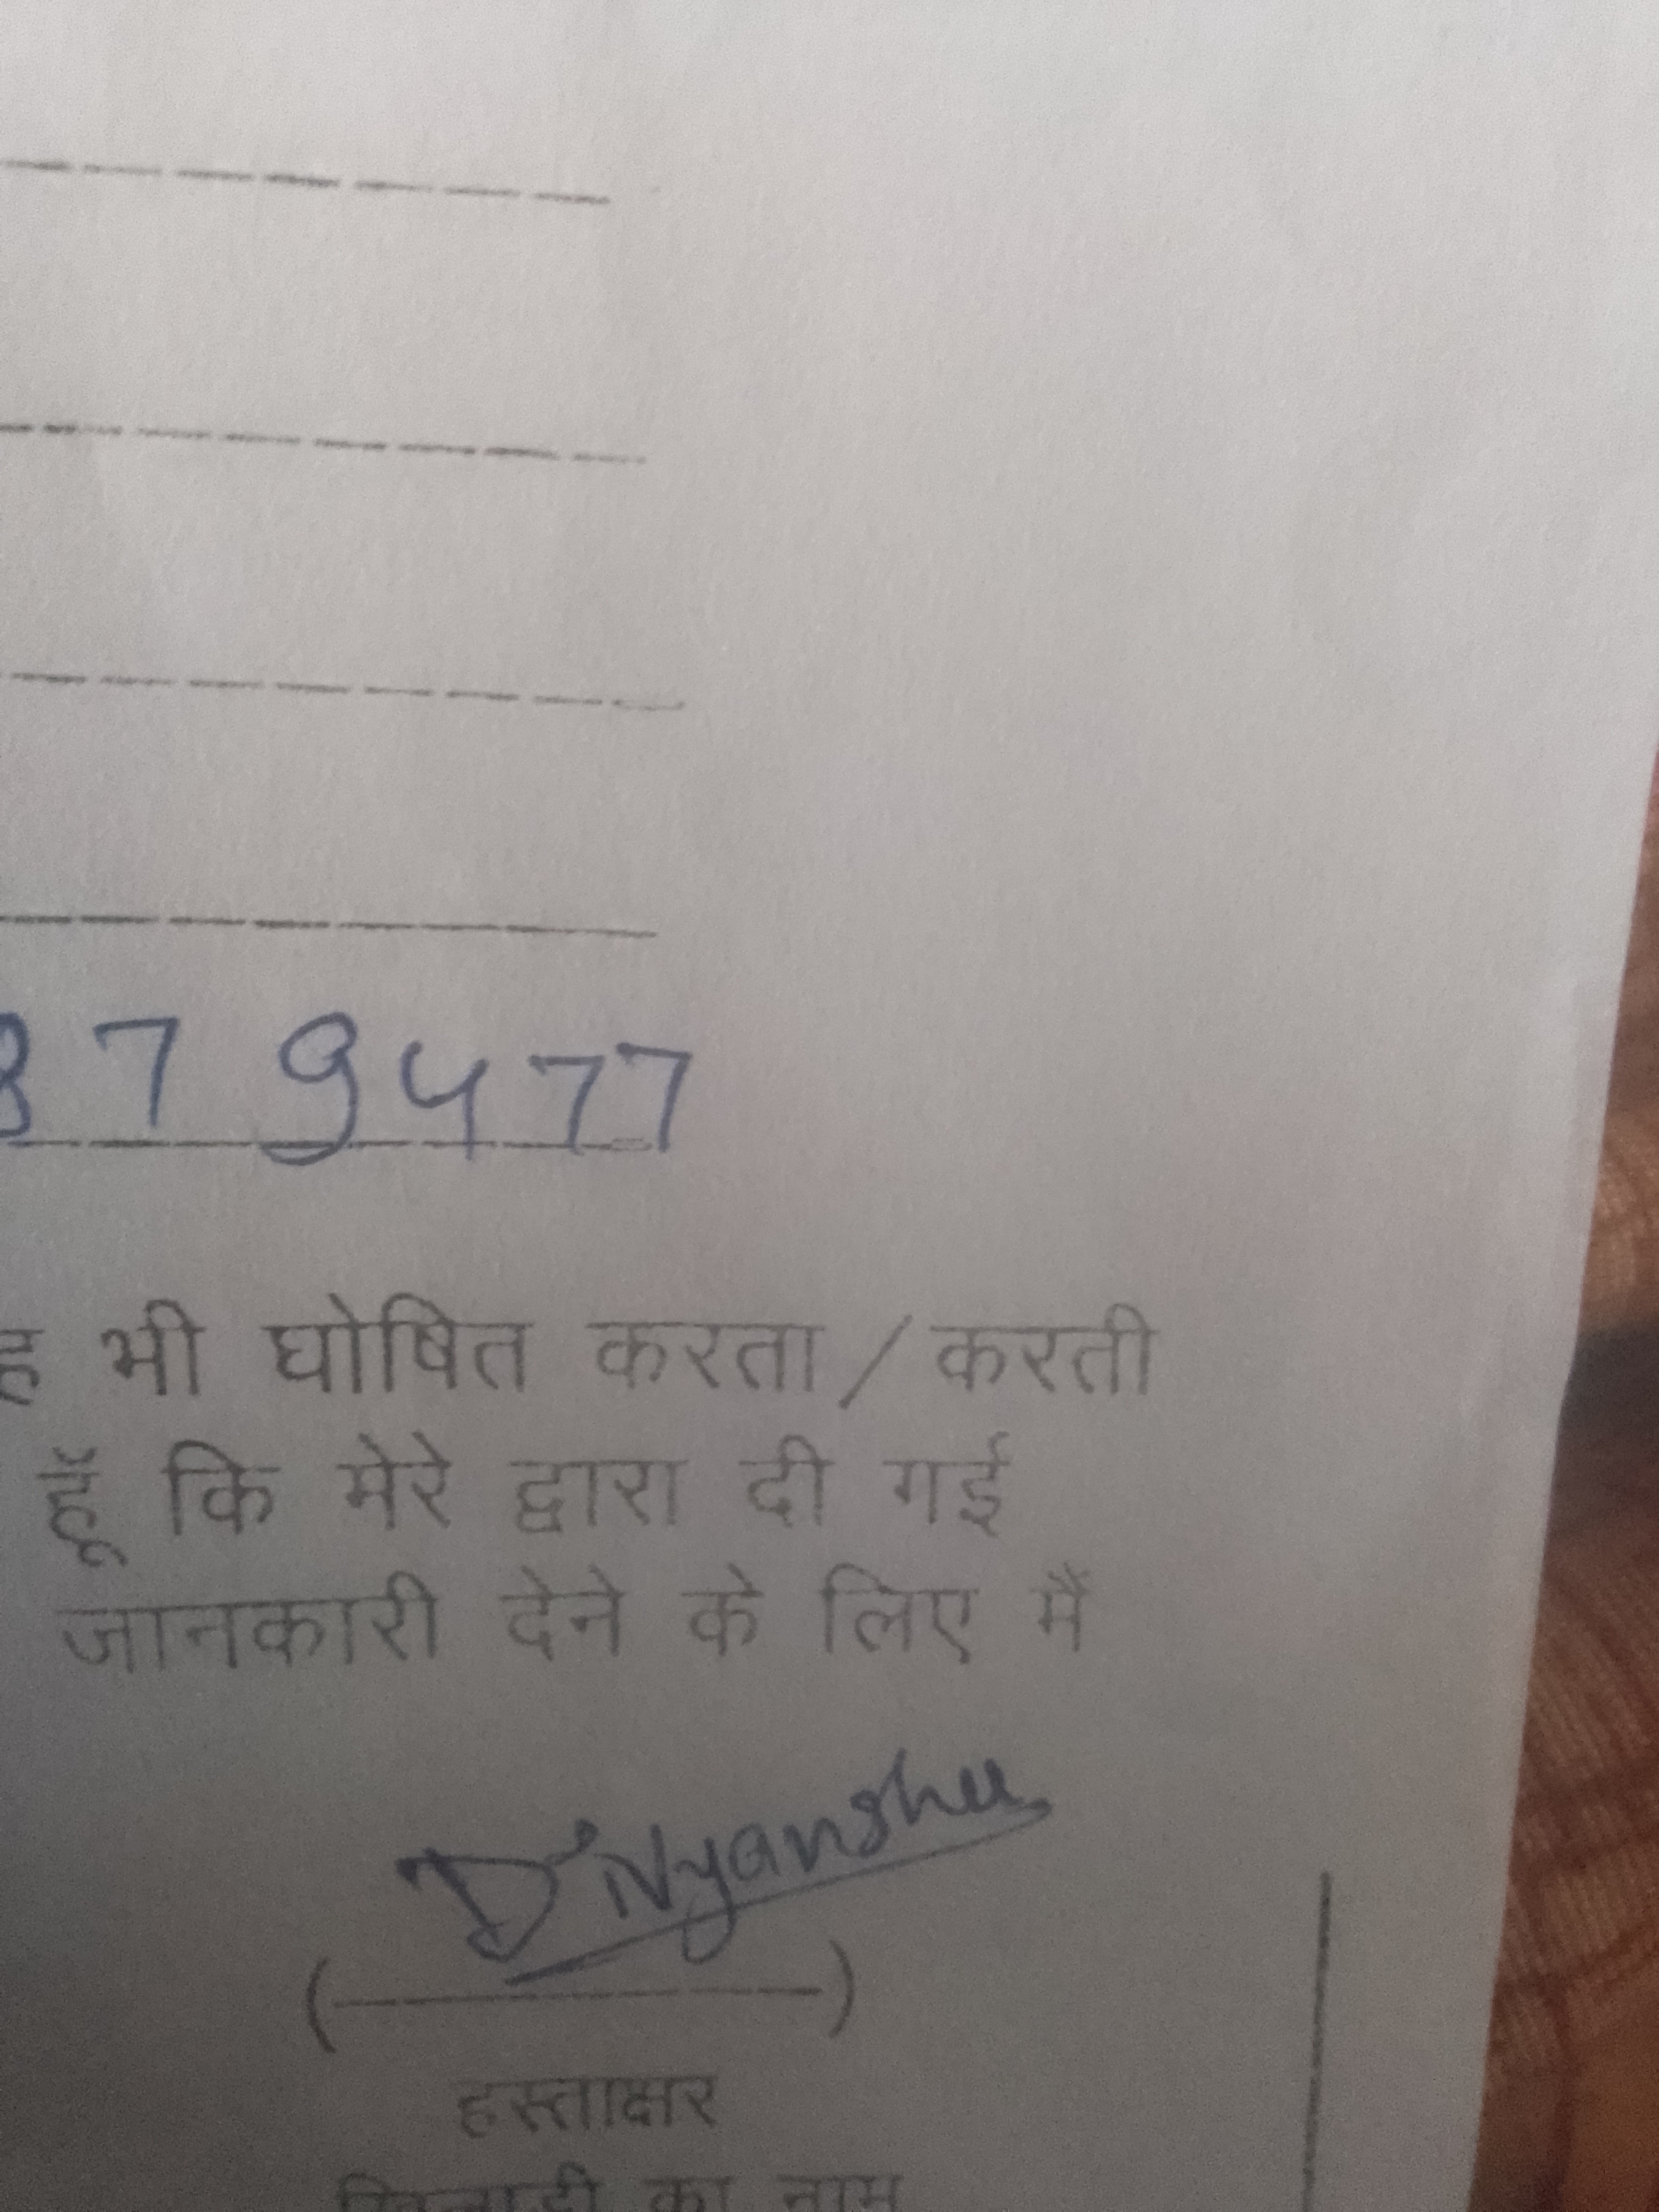 8 7 9477
ह भी घोषित करता/करती
हूँ कि मेरे द्वारा दी गई
जानकारी देने के लिए मैं
Divyanshu
(--------------)
हस्ताक्षर
खिलाड़ी का नाम